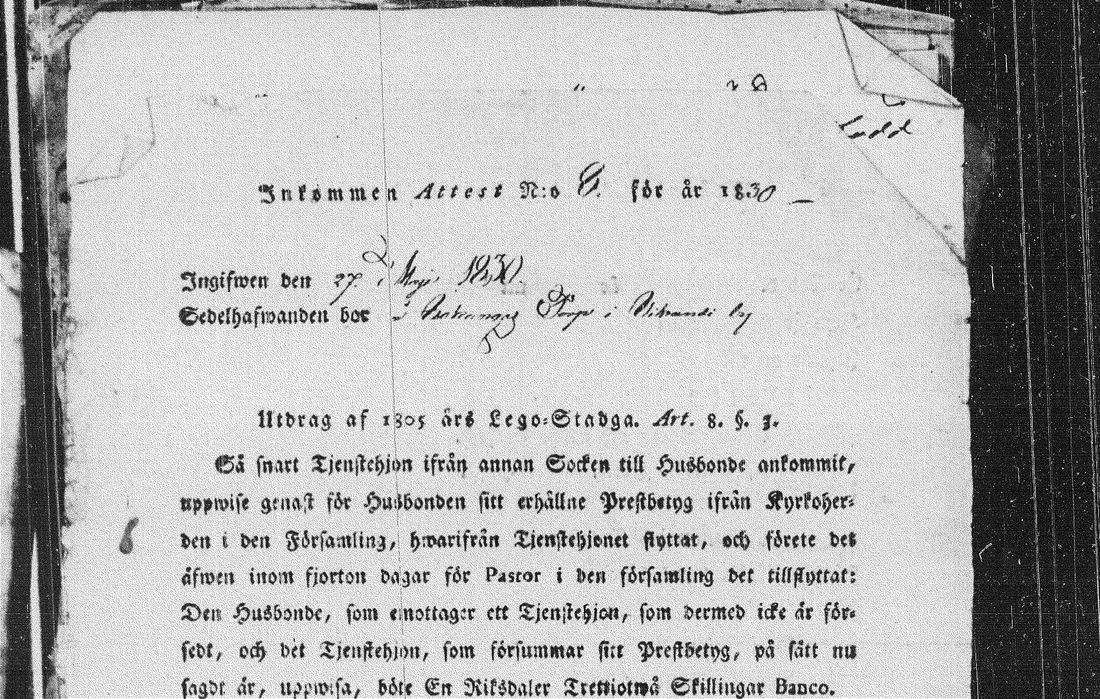 Ladd
Inkommen Attest N:o 8. för år 1830
Ingifwen den 27. Maji 1830.
Sedelhafwanden bor i by
Utdrag af 1805 års Lego-Stadga. Art. 8. §. 3.
Så snart Tjenstehjon ifrån annan Socken till Husbonde ankommit,
uppwise genast för Husbonden sitt erhållne Prestbetyg ifrån Kyrkoher-
den i den Församling, hwarifrån Tjenstehjonet flyttat, och förete det
äfwen inom fjorton dagar för Pastor i den församling det tillflyttat:
Den Husbonde, som emottager ett Tjenstehjon, som dermed icke är för-
sedt, och det Tjenstehjon, som försummar sitt Prestbetyg, på sätt nu
sagdt är, uppwisa, böte En Riksdaler Trettiotwå Skillingar Banco.